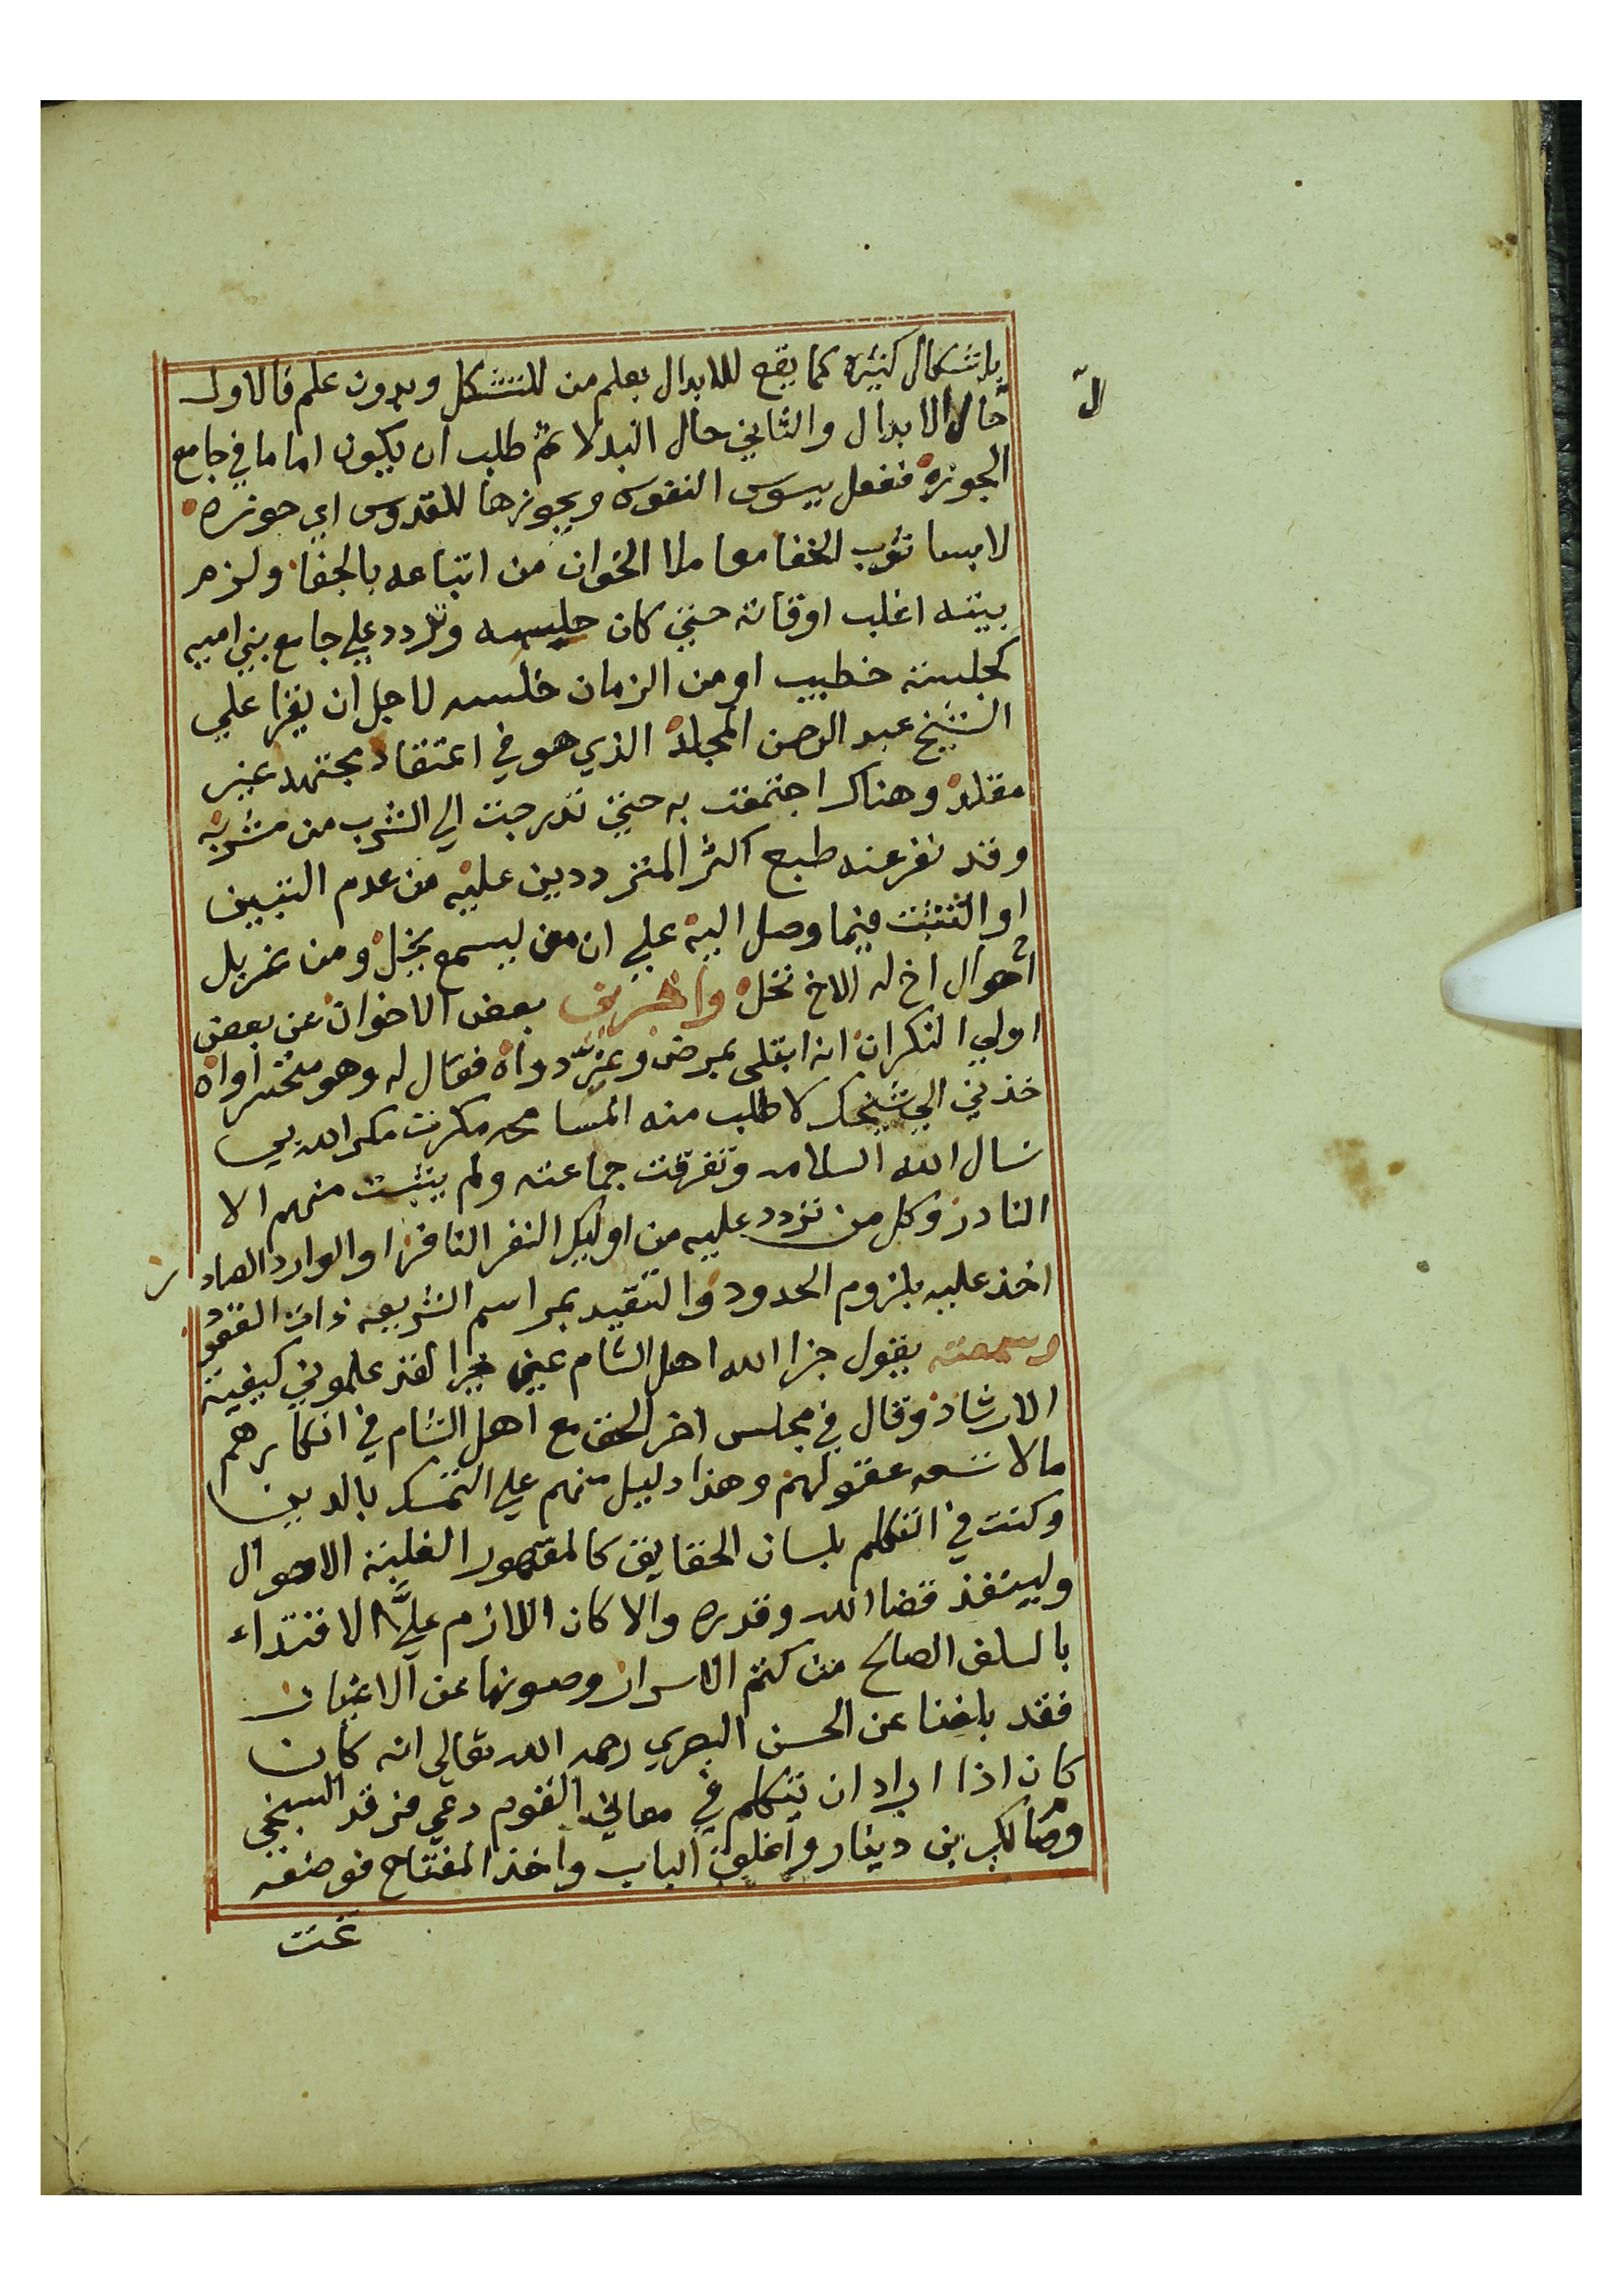 باشكال كثيره كما يقع للابدال بعلم من المتشكل وبدون علم فالاول
حال الابدال والثاني حال البدلا ثم طلب ان يكون اماما في جامع
الجوزه ففعل يسوس النفوس ويجوزها للقدوس اي حوزه
لابسا ثوب الخفا معاملا الخوان من اتباعه بالجفا ولزم
بيته اغلب اوقاته حتي كان حليسه وتردد علي جامع بني اميه
كجلسة خطيب او من الزمان خلسه لاجل ان يقرا علي
الشيخ عبد الرحمن المجلد الذي هو في اعتقاد مجتهد غير
مقلد وهناك اجتمعت به حتي تدرجت الي الشرب من مشربه
وقد نفر عنه طبع اكثر المترددين عليه من عدم التبيين
او التثبت فيما وصل اليه علي ان من يسمع يخل ومن غربل
احوال اخ له الاخ نخل واخبرني بعض الاخوان عن بعض
اولي النكران انه ابتلي بمرض وعزّ دواه فقال له وهو متحسر اواه
خذني الي شيخك لاطلب منه المسامحه مكرت مكر الله بي
نسال الله السلامه وتفرقت جماعته ولم يثبت منهم الا
النادر وكل من تردد عليه من اوليك النفر النافر او الوارد الصادر
اخذ عليه بلزوم الحدود والتقيد بمراسم الشريعه ذات القعود
وسمعته يقول جزا الله اهل الشام عني خيرا لقد علموني كيفية
الارشاد وقال في مجلس اخر الحق مع اهل الشام في انكارهم
ما لا تسعه عقولهم وهذا دليل منهم علي التمسك بالدين
وكنت في التكلم بلسان الحقايق كالمقهور لغلبة الاحوال
ولينفذ قضا الله وقدره والا كان اللازم عليَّ الاقتداء
بالسلف الصالح من كتم الاسرار وصونها عن الاغيار
فقد بلغنا عن الحسن البصري رحمه الله تعالي انه كان
كان اذا اراد ان يتكلم في معاني القوم دعي فرقد السبخي
ومالك بن دينار واغلق الباب واخذ المفتاح فوضعه
تحت